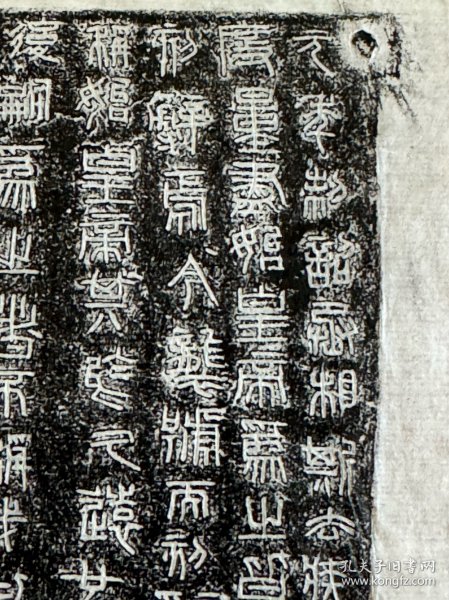 元年制詔丞相斯去疾
度量盡始皇帝爲之皆
刻辭焉今襲號而刻
稱始皇帝其於久遠也
後嗣爲之者不稱成
孔夫子旧书网
www.kongfz.com